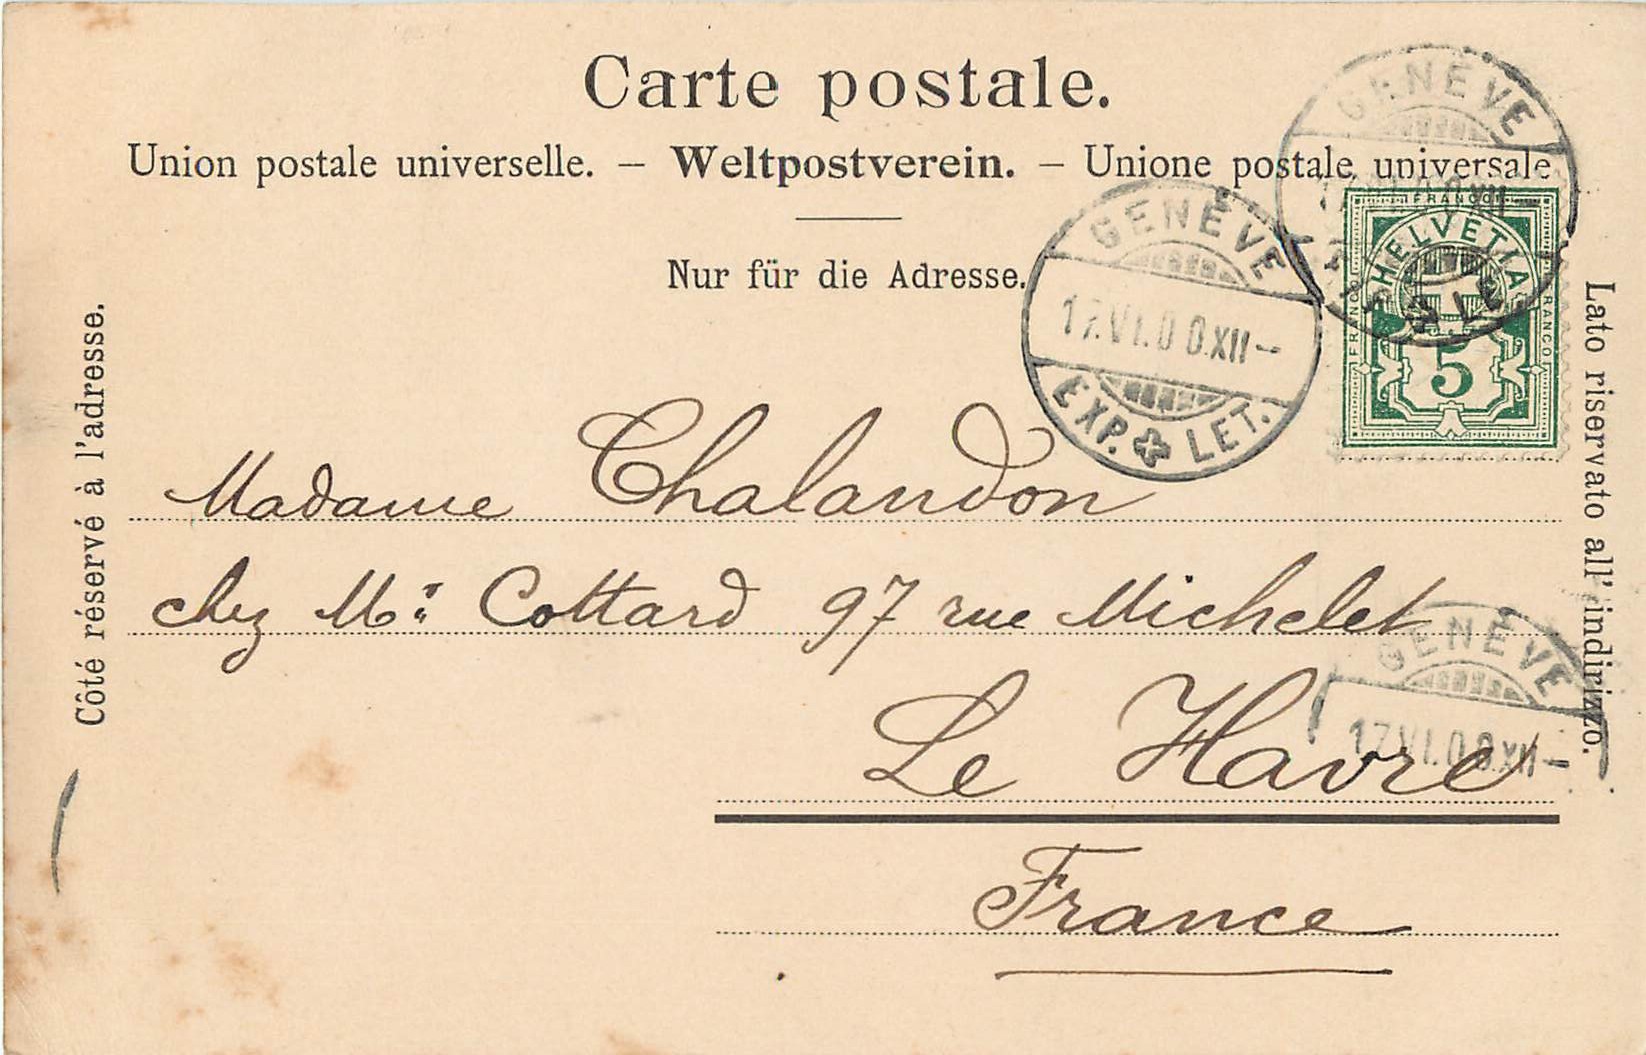 Carte postale.
Union postale universelle. – Weltpostverein. – Unione postale universale
Nur für die Adresse.
Côté réservé à l'adresse.
Lato riservato all' indirizzo.
GENÈVE
XII
LET
FRANCO
HELVETIA
FRANCO
FRANCO
5
GENÈVE
17.VI.00.XII–
EXP. LET.
Madame Chalandon
chez Mr Cottard 97 rue Michelet
Le Havre
France
GENÈVE
17.VI.00.XII–